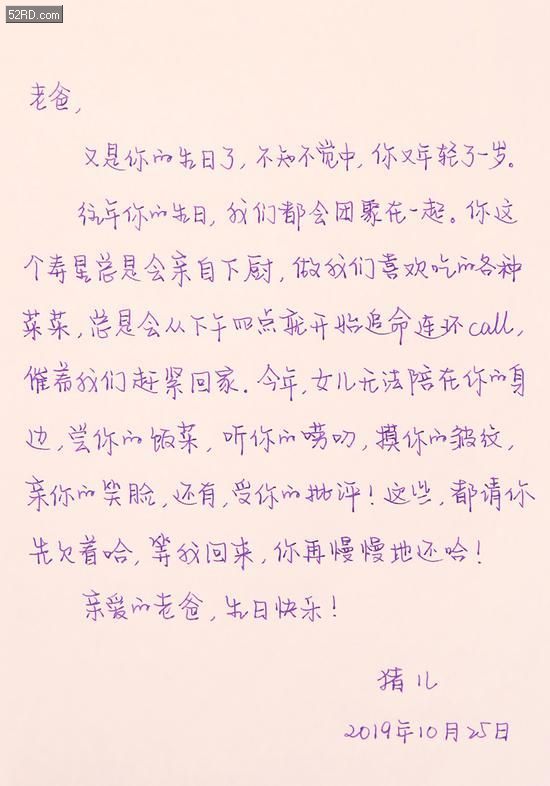 52RD.com
老爸，
又是你的生日了，不知不觉中，你又年轻了一岁。
往年你的生日，我们都会团聚在一起。你这
个寿星总是会亲自下厨，做我们喜欢吃的各种
菜菜，总是会从下午四点就开始追命连环call，
催着我们赶紧回家．今年，女儿无法陪在你的身
边，尝你的饭菜，听你的唠叨，摸你的皱纹，
亲你的笑脸，还有，受你的批评！这些，都请你
先欠着哈，等我回来，你再慢慢地还哈！
亲爱的老爸，生日快乐！
猪儿
2019年10月25日